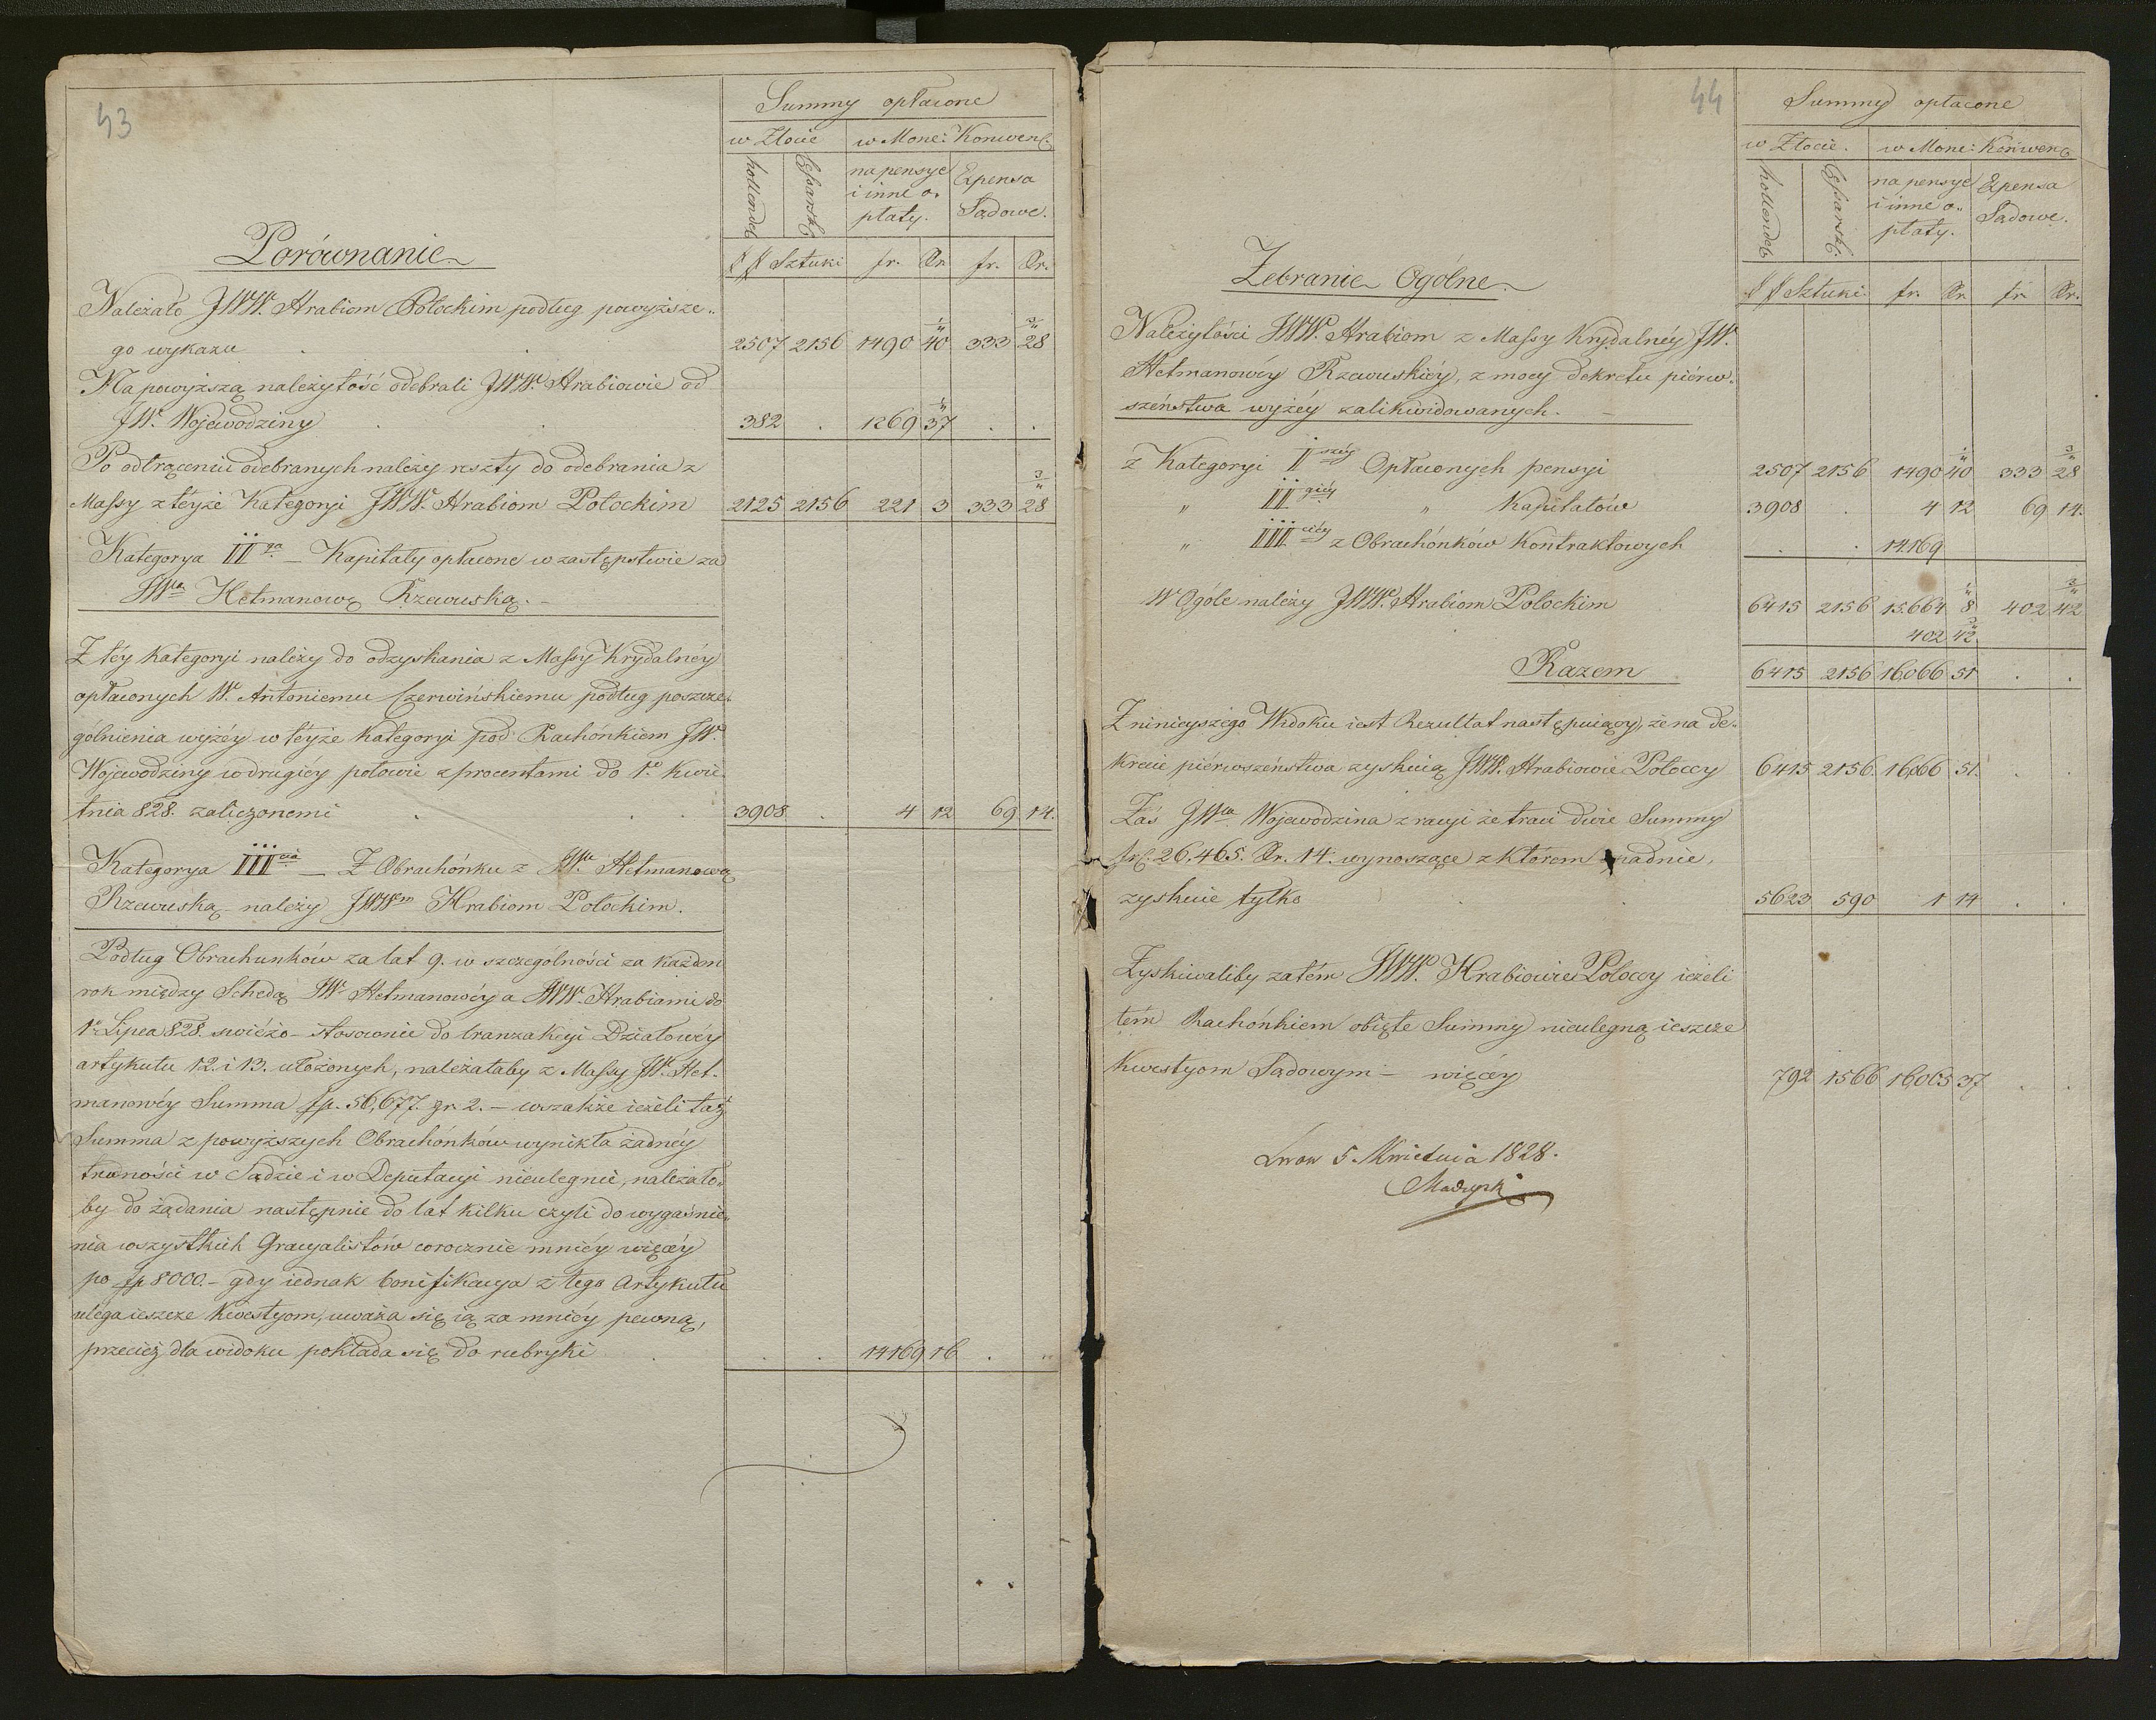 43
Summy opłacone
w Złocie w Mone: Konwenc.
hollend. Cesarsk. na pensye i inne o„ płaty. Expensa Sądowe.
Sztuki fr. Xr. fr. Xr.
Porównanie
Należało JWW. Hrabiom Potockim podług powyższe„
go wykazu . . 2507 2156 1490 40 1/4 333 28 3/4
Na powyższą należytość odebrali JWW. Hrabiowie od
JW. Wojewodziny . . 382 . 1269 37 1/4 . .
Po odtrąceniu odebranych należy reszty do odebrania z
Massy z teyże Kategoryi JWW. Hrabiom Potockim 2125 2156 221 3 333 28 3/4
Kategorya II ga – Kapitały opłacone w zastępstwie za
JWą Hetmanową Rzewuską. –
Z tey Kategoryi należy do odzyskania z Massy Krydalnéy
opłaconych W. Antoniemu Czerwińskiemu podług poszcze„
gólnienia wyżéy w teyże Kategoryi pod Rachónkiem JW.
Wojewodziny w drugiéy połowie z procentami do 1o Kwie„
tnia 828. zaliczonemi . . . 3908 . 4 12 69 14.
Kategorya III cia – Z Obrachónku z JWą Hetmanową
Rzewuską należy JWWm Hrabiom Potockim.
Podług Obrachunków za lat 9. w szczególności za każden
rok między Schedą JW Hetmanowéy a JWW. Hrabiami do
1o Lipca 828. świéżo stosownie do tranzakcyi Działowéy
artykułu 12. i 13. ułożonych, należałaby z Massy JW. Het„
manowéy Summa fp. 56,677. gr. 2. – wszakże ieżeli taż
Summa z powyższych Obrachónków wynikła żadnéy
trudności w Sądzie i w Deputacyi nieulegnie, należało„
by do żądania następnie do lat kilku czyli do wygaśnie„
nia wszystkich Gracyalistów corocznie mniéy więcéy
po fp 8000. – gdy iednak bonifikacya z tego Artykułu
ulega ieszcze kwestyom, uważa się ią za mniéy pewną,
przecież dla widoku pokłada się do rubryki . . . 14169 16 . „
44
Summy opłacone
w Złocie. w Mone: Konwenc
hollend. Cesarsk. na pensye i inne o„ płaty. Expensa Sądowe.
Sztuki fr. Xr. fr Xr.
Zebranie Ogólne.
Należytości JWW. Hrabiom z Massy Krydalnéy JW.
Hetmanowéy Rzewuskiéy, z mocy dekretu piérw„
szeństwa wyżéy zalikwidowanych. –
z Kategoryi I széy Opłaconych pensyi 2507 2156 1490 40 1/4 333 28 3/4
„ II giéy „ Kapitałów 3908 . 4 12 69 14.
„ III ciéy z Obrachónków Kontraktowych . . 14.169
W Ogóle należy JWW. Hrabiom Potockim 6415 2156 15.664 8 1/4 402 42 3/4
402 42 3/4
Razem 6415 2156 16.066 51 . .
Z ninieyszego Widoku iest Rezultat następuiący, że na de„
krecie piérwszeństwa zyskuią JWW. Hrabiowie Potoccy 6415 2156 16,066 51. . .
Zaś JWa Wojewodzina z racyi że traci dwie Summy
frC. 26.465. Xr. 14. wynoszące z którem spadnie,
zyskuie tylko . . 5623 590 1 14 . .
Zyskiwaliby zatém JWW. Hrabiowie Potoccy ieżeli
tém Rachónkiem obięte Summy nieulegną ieszcze
Kwestyom Sądowym – więcéy 792 1566 16.065 37 . .
Lwow 5. Kwietnia 1828.